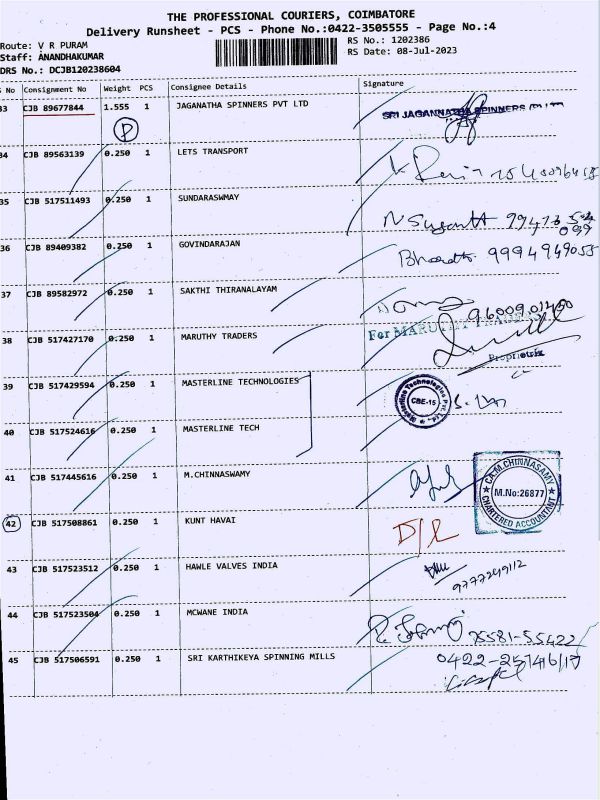 THE PROFESSIONAL COURIERS, COIMBATORE
Delivery Runsheet - PCS - Phone No.:0422-3505555 - Page No.:4
Route: V R PURAM
RS No.: 1202386
Staff: ANANDHAKUMAR
RS Date: 08-Jul-2023
DRS No.: DCJB120238604
No Consignment No Weight PCS Consignee Details Signature
33 CJB 89677844 1.555 1 JAGANATHA SPINNERS PVT LTD SRI JAGANNATHA SPINNERS (P) LTD
P
34 CJB 89563139 0.250 1 LETS TRANSPORT
35 CJB 517511493 0.250 1 SUNDARASWMAY
36 CJB 89409382 0.250 1 GOVINDARAJAN Bharath 9994949055
37 CJB 89582972 0.250 1 SAKTHI THIRANALAYAM
38 CJB 517427170 0.250 1 MARUTHY TRADERS For MARUTHY TRADERS
Proprietrix
39 CJB 517429594 0.250 1 MASTERLINE TECHNOLOGIES Masterline Technologies Pvt. Ltd. CBE-15
40 CJB 517524616 0.250 1 MASTERLINE TECH
41 CJB 517445616 0.250 1 M.CHINNASWAMY CA.M.CHINNASAMY M.No:26877 CHARTERED ACCOUNTANT
42 CJB 517508861 0.250 1 KUNT HAVAI D/L
43 CJB 517523512 0.250 1 HAWLE VALVES INDIA
9777249112
44 CJB 517523504 0.250 1 MCWANE INDIA 75581-55422
45 CJB 517506591 0.250 1 SRI KARTHIKEYA SPINNING MILLS